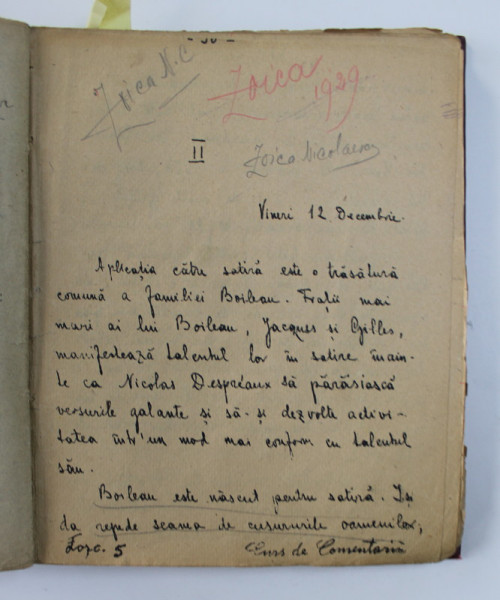 - 50 -
Zoica N.C
Zoica
1929
II
Zoica Nicolaevna
Vineri 12 Decembrie.
Aplicația către satiră este o trăsătură
comună a familiei Boileau. Frații mai
mari ai lui Boileau, Jacques și Gilles,
manifestează talentul lor în satire înain-
te ca Nicolas Despréaux să părăsiască
versurile galante și să-și dezvolte activi-
tatea într'un mod mai conform cu talentul
său.
Boileau este născut pentru satiră. Iși
da repede seama de cusururile oamenilor,
Fasc. 5
Curs de Comentarii